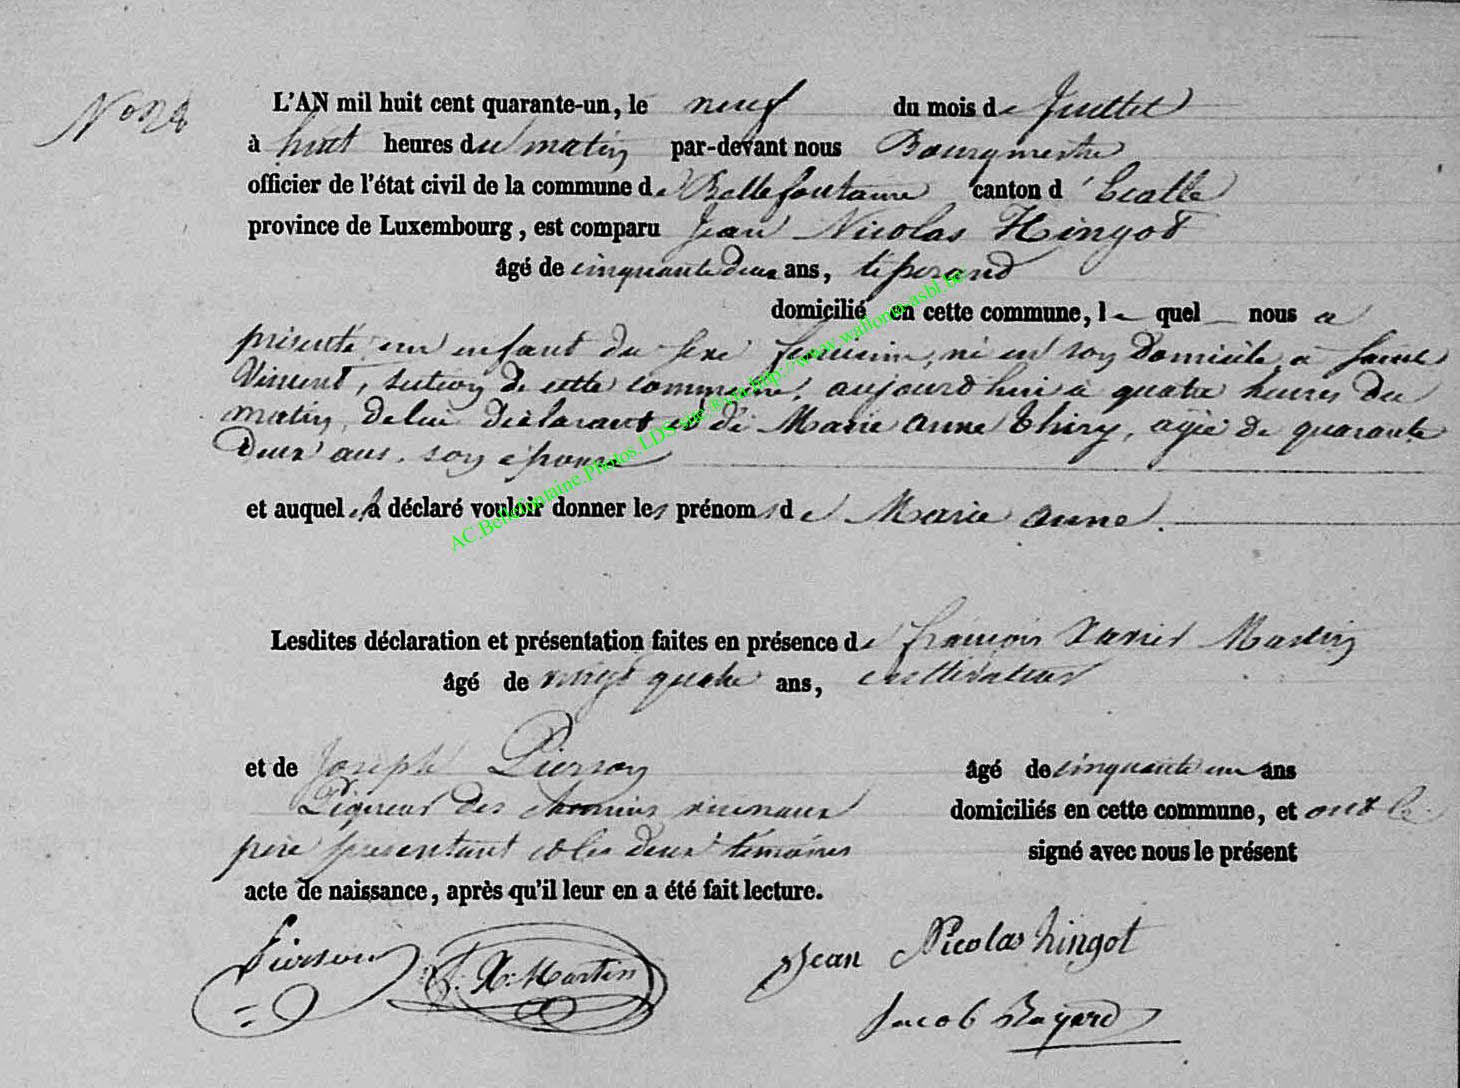 No 24
L'AN mil huit cent quarante-un, le neuf du mois de Juillet
à huit heures du matin par-devant nous Bourgmestre
officier de l'état civil de la commune de Bellefontaine canton d'Etalle
province de Luxembourg, est comparu Jean Nicolas Hingot
âgé de cinquante deux ans, tisserand
domicilié en cette commune, le quel nous a
présenté un enfant du sexe feminin, né en son domicile à Saint
Vincent, section de cette commune, aujourd'hui à quatre heures du
matin, de lui déclarant et de Marie Anne Thiry, agée de quarante
deux ans, son épouse
et auquel il a déclaré vouloir donner les prénoms de Marie Anne.
Lesdites déclaration et présentation faites en présence de François Xavier Martin
âgé de vingt quatre ans, cultivateur
et de Joseph Pierson âgé de cinquante un ans
Piqueur des chemins vicinaux domiciliés en cette commune, et ont le
père présentant et les deux témoins signé avec nous le présent
acte de naissance, après qu'il leur en a été fait lecture.
Pierson F. X. Martin Jean Nicolas hingot
Jacob Bayard
AC.Bellefontaine.Photos.LDS sur ® via http://www.wallonia-asbl.be